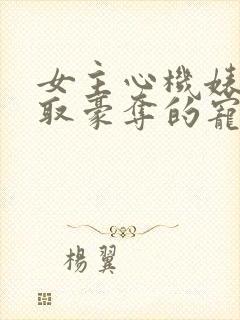 女主心機婊
取豪奪的寵
楊翼